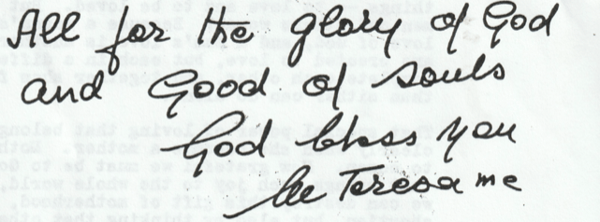 All for the glory of God
and Good of souls
God bless you
lle Teresa mc